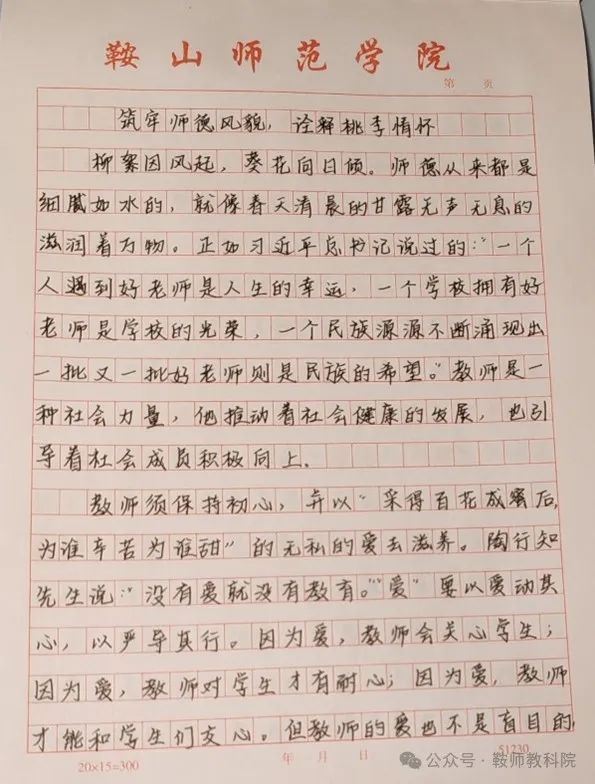 鞍山师范学院
第 页
筑牢师德风貌，诠释桃李情怀
柳絮因风起，葵花向日倾。师德从来都是
细腻如水的，就像春天清晨的甘露无声无息的
滋润着万物。正如习近平总书记说过的：“一个
人遇到好老师是人生的幸运，一个学校拥有好
老师是学校的光荣，一个民族源源不断涌现出
一批又一批好老师则是民族的希望。”教师是一
种社会力量，他推动着社会健康的发展，也引
导着社会成员积极向上．
教师须保持初心，并以“采得百花成蜜后，
为谁辛苦为谁甜”的无私的爱去滋养。陶行知
先生说：“没有爱就没有教育。”“爱”要以爱动其
心，以严导其行。因为爱，教师会关心学生；
因为爱，教师对学生才有耐心；因为爱，教师
才能和学生们交心。但教师的爱也不是盲目的，
20×15=300
年 月 日
51230
公众号·鞍师教科院